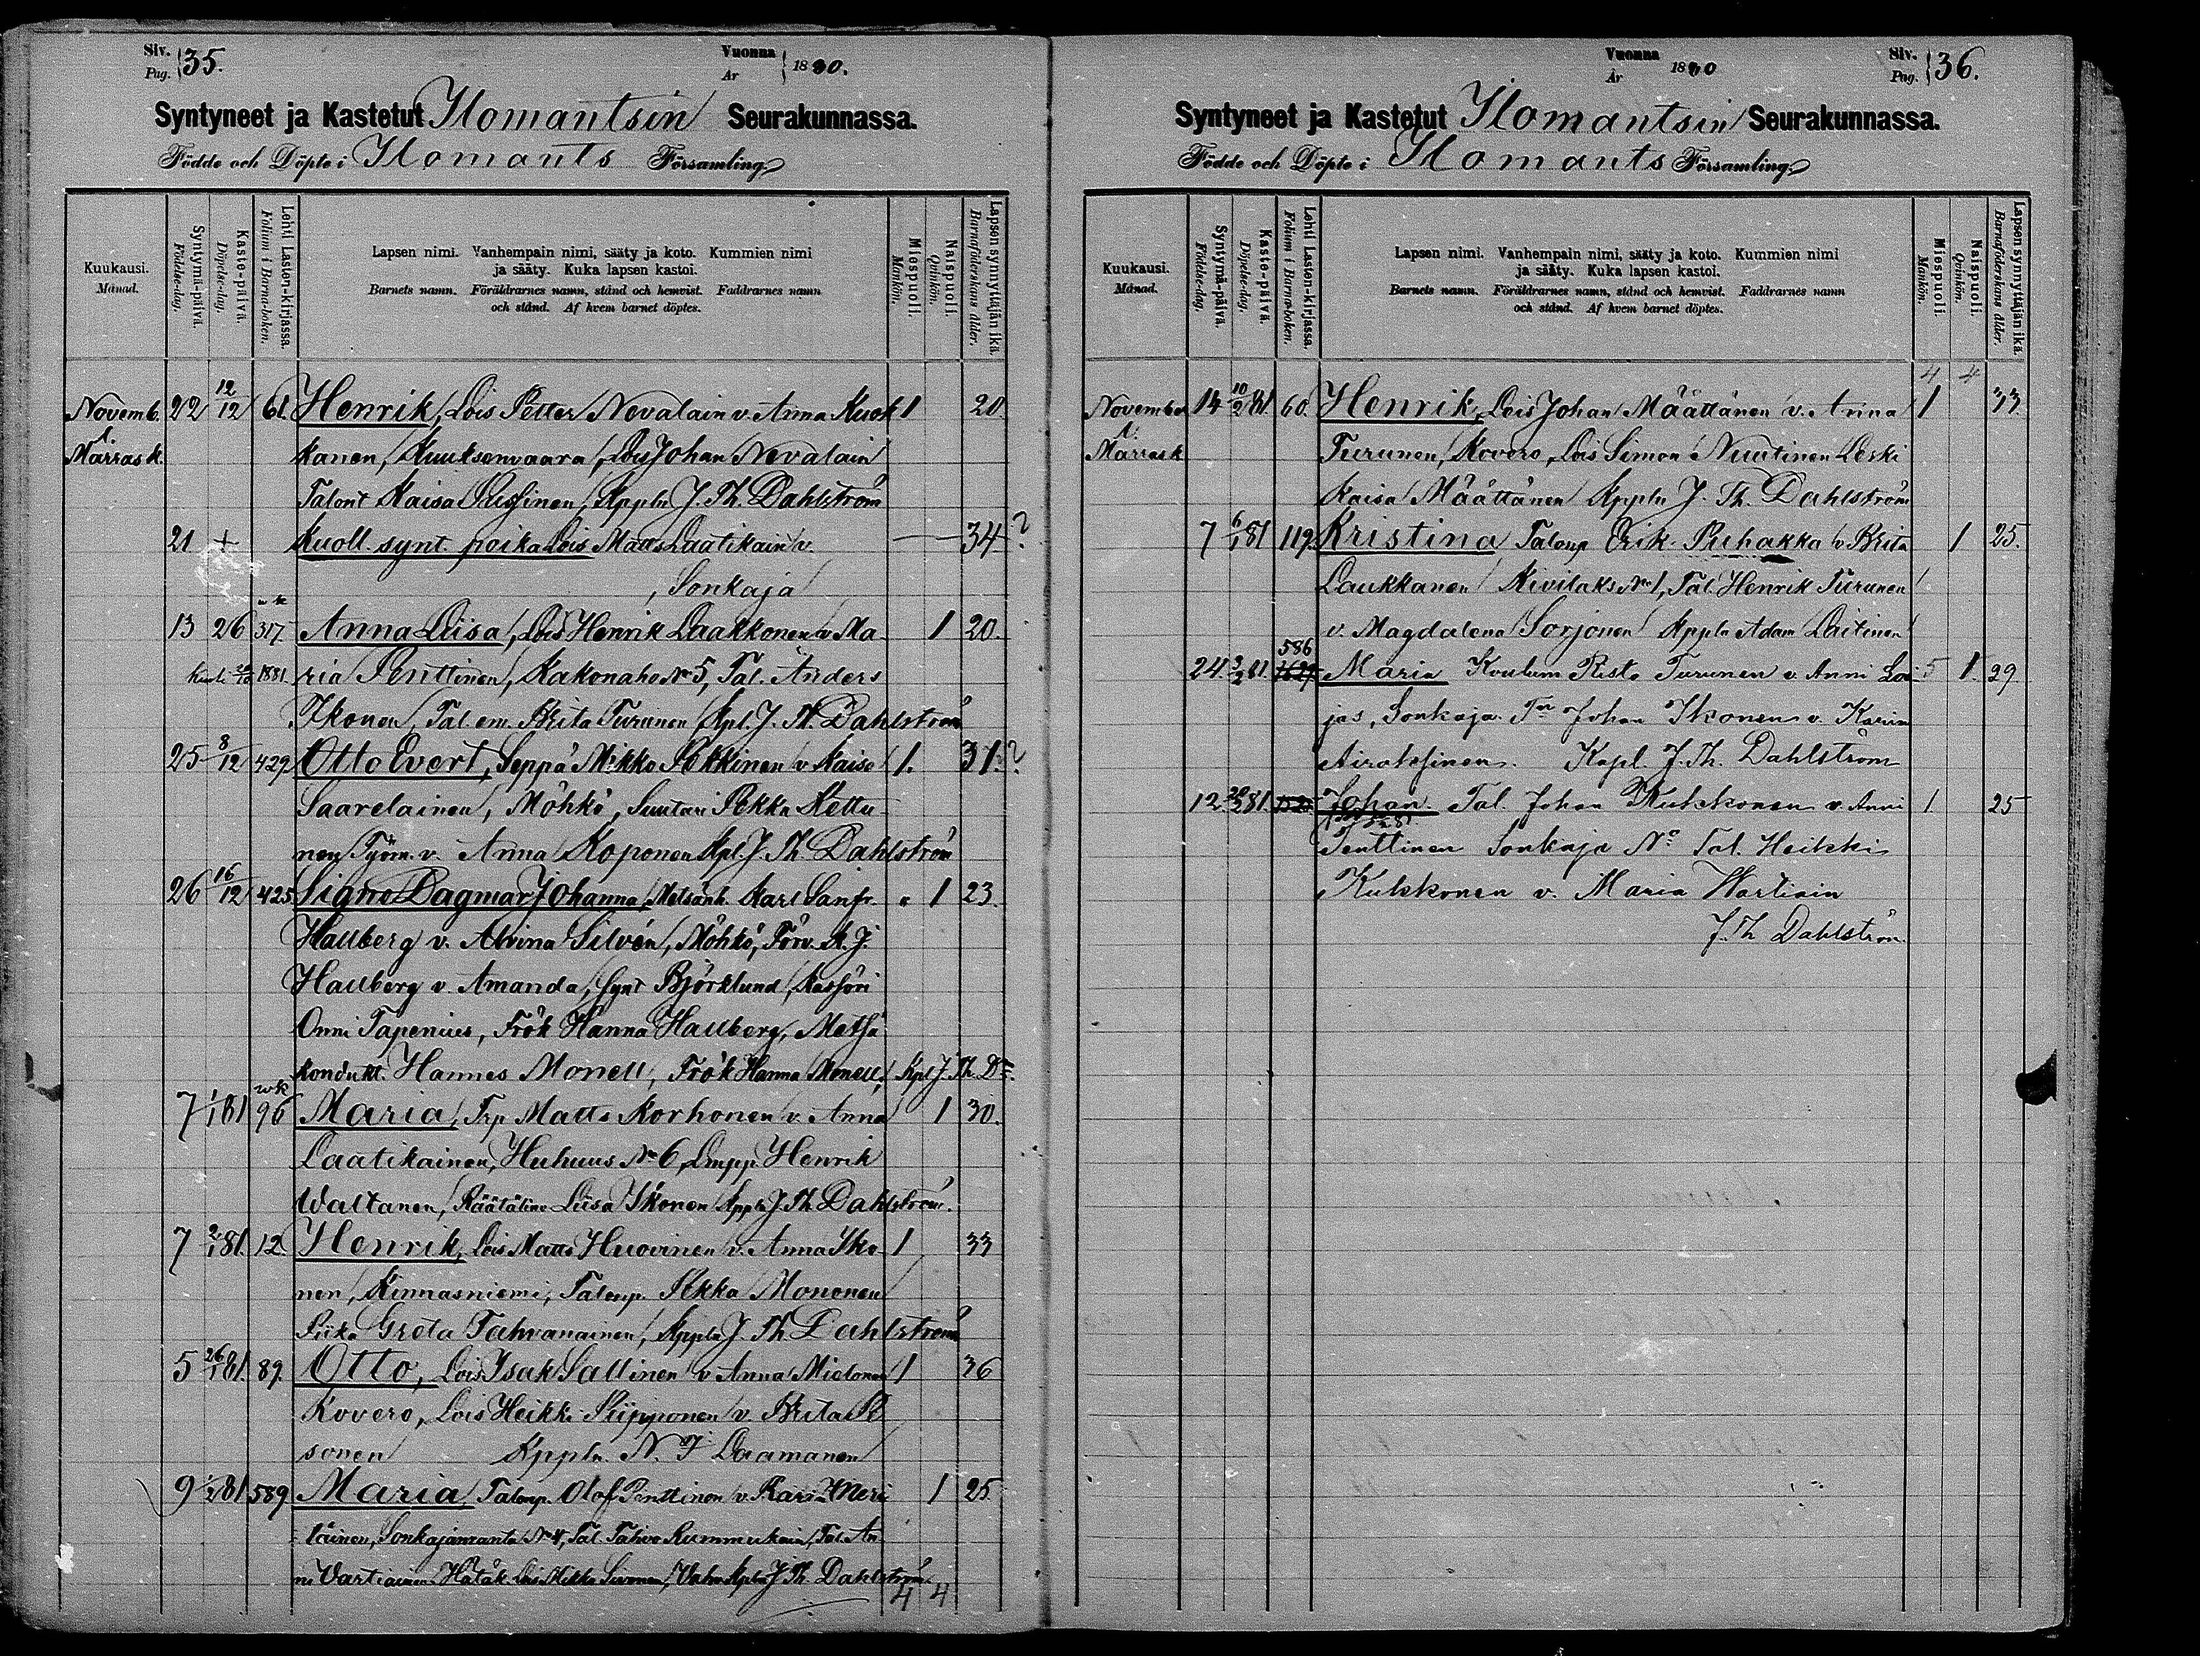 Siv. Pag. 35.
Vuonna År 1880.
Syntyneet ja Kastetut Ilomantsin Seurakunnassa.
Födde och Döpte i Ilomants Församling.
Kuukausi. Månad.
Syntymä-päivä. Födelse-dag.
Kaste-päivä. Döpelse-dag.
Lehti Lasten-kirjassa. Folium i Barna-boken.
Lapsen nimi. Vanhempain nimi, sääty ja koto. Kummien nimi
ja sääty. Kuka lapsen kastoi.
Barnets namn. Föräldrarnes namn, stånd och hemvist. Faddrarnes namn
och stånd. Af hvem barnet döptes.
Miespuoli. Mankön.
Naispuoli. Qvinkön.
Lapsen synnyttäjän ikä. Barnaföderskans ålder.
Novemb. 22 12/12 61. Henrik, Lois Petter Nevalain v. Anna Kuok 1 20
l. Marrask. kanen, Kuuksenvaara, Lois Johan Nevalain
Talont Kaisa Pussinen, Kppln J. Th. Dahlström
21 + Kuoll. synt. poika Lois Matts Laatikain v. — 34 ?
, Sonkaja
13 26 317. Anna Liisa, Lois Henrik Laakkonen v. Ma- 1 20.
1881. ria Penttinen, Kakonaho No 5, Tal. Anders
Ikonen, Tal. em. Brita Turunen, Kpl. J. Th. Dahlström
25 8/12 429 Otto Evert, Seppä Mikko Pekkinen v. Kaisa 1. 31. ?
Saarelainen, Möhkö, Suutari Pekka Kettu-
nen Työm. v. Anna Koponen Kpl. J. Th. Dahlström
26 16/12 425 Signe Dagmar Johanna, Metsänh. Karl Sanfr. " 1 23.
Hallberg v. Alvina Silvén, Möhkö, Förv. A. J.
Hallberg v. Amanda, synt Björklund, Kassöri
Onni Tapenius, Frök Hanna Hallberg, Metsä
kondukt. Hannes Monell, Frök Hanna Monell, Kpl J. Th. Dm.
7 1/1 81 96 Maria, Trp Matts Korhonen v. Anna 1 30.
Laatikainen, Huhuus No 6, Lmpp Henrik
Waltanen, Räätälinv Liisa Ikonen Kppln J. Th. Dahlström.
7 2/1 81. 12. Henrik, Lois Matts Huovinen v. Anna Iko- 1 33
nen, Kinnasniemi, Talonp. Pekka Mononen
Piika Greta Tahvanainen, Kppln J. Th Dahlström
5 26/1 81. 89. Otto, Lois Isak Sallinen v. Anna Mielonen 1 36
Kovero, Lois Heikki Piipponen v. Brita Pe
sonen Kppln. N. J Laamanen
9 1/2 81 589 Maria, Talonp. Olof Penttinen v. Karin Meri 1 25
läinen, Sonkajanranta No 4, Tal. Tahvo Rummukain, Tal. An-
ni Vartiainen Hätäk. Lois Mikko Sivonen, Vahv. Kpln J Th Dahlström
4 4
Vuonna År 1880
Siv. Pag. 36.
Syntyneet ja Kastetut Ilomantsin Seurakunnassa.
Födde och Döpte i Ilomants Församling.
Kuukausi. Månad.
Syntymä-päivä. Födelse-dag.
Kaste-päivä. Döpelse-dag.
Lehti Lasten-kirjassa. Folium i Barna-boken.
Lapsen nimi. Vanhempain nimi, sääty ja koto. Kummien nimi
ja sääty. Kuka lapsen kastoi.
Barnets namn. Föräldrarnes namn, stånd och hemvist. Faddrarnes namn
och stånd. Af hvem barnet döptes.
Miespuoli. Mankön.
Naispuoli. Qvinkön.
Lapsen synnyttäjän ikä. Barnaföderskans ålder.
4 4
November 14 10/2 81 60. Henrik, Lois Johan Määttänen v. Anna 1 33
l. Marrask Turunen, Kovero, Lois Simon Nuutinen Leski
Kaisa Määttänen Kppln J. Th. Dahlström
7 6/1 81 119. Kristina Talonp Erik Puhakka v. Brita 1 25.
Laukkanen Kivilaks No 1, Tal. Henrik Turunen
v. Magdalena Sorjonen Kppln Adam Laitinen
586
24. 3/2 81. Maria Koulum Risto Turunen v. Anni Loi- 5 1. 29
jas, Sonkaja. Tm Johan Ikonen v. Karin
Airaksinen. Kapl. J. Th. Dahlström
12. 20/2 81. Johan. Tal. Johan Kukkonen v. Anni 1 25
Penttinen Sonkaja No Tal. Heikki
Kukkonen v. Maria Wartiain
J. Th Dahlström.